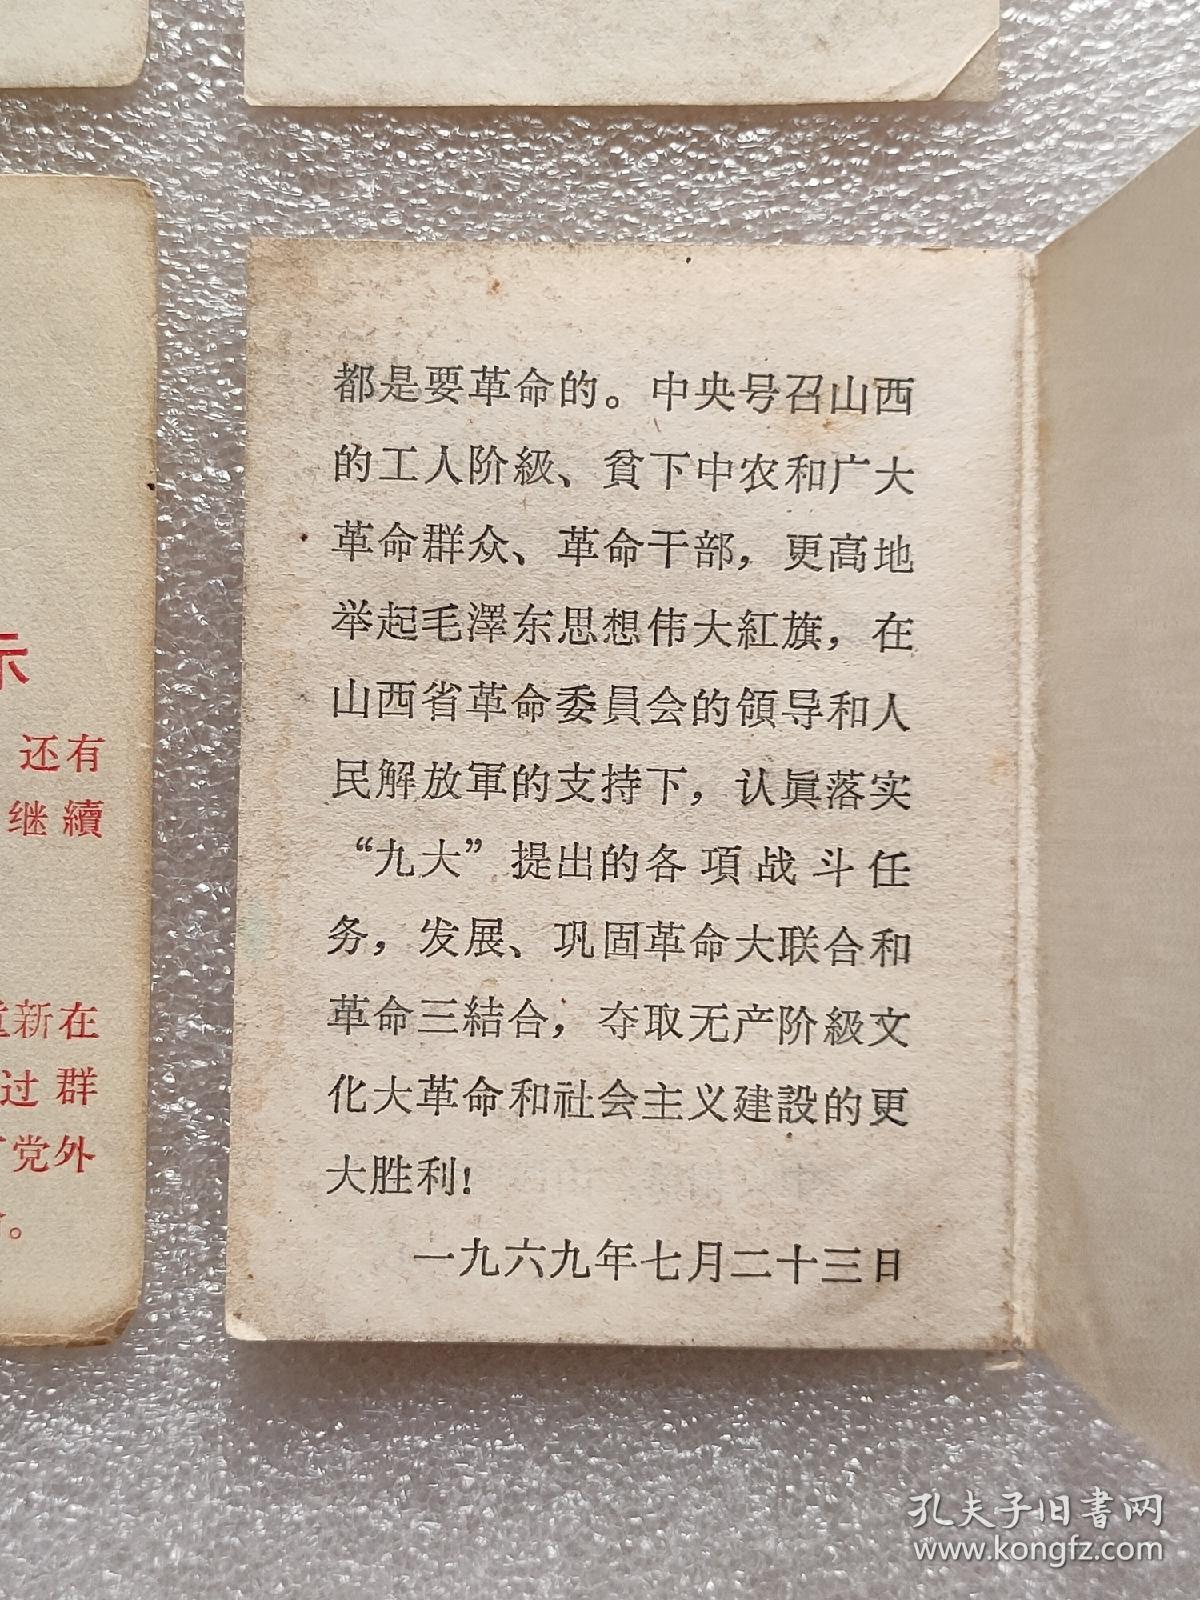 示
还有
继續
重新在
过群
党外
。
都是要革命的。中央号召山西
的工人阶級、貧下中农和广大
革命群众、革命干部，更高地
举起毛澤东思想伟大紅旗，在
山西省革命委員会的領导和人
民解放軍的支持下，认眞落实
“九大”提出的各項战斗任
务，发展、巩固革命大联合和
革命三結合，夺取无产阶級文
化大革命和社会主义建設的更
大胜利！
一九六九年七月二十三日
孔夫子旧書网
www.kongfz.com